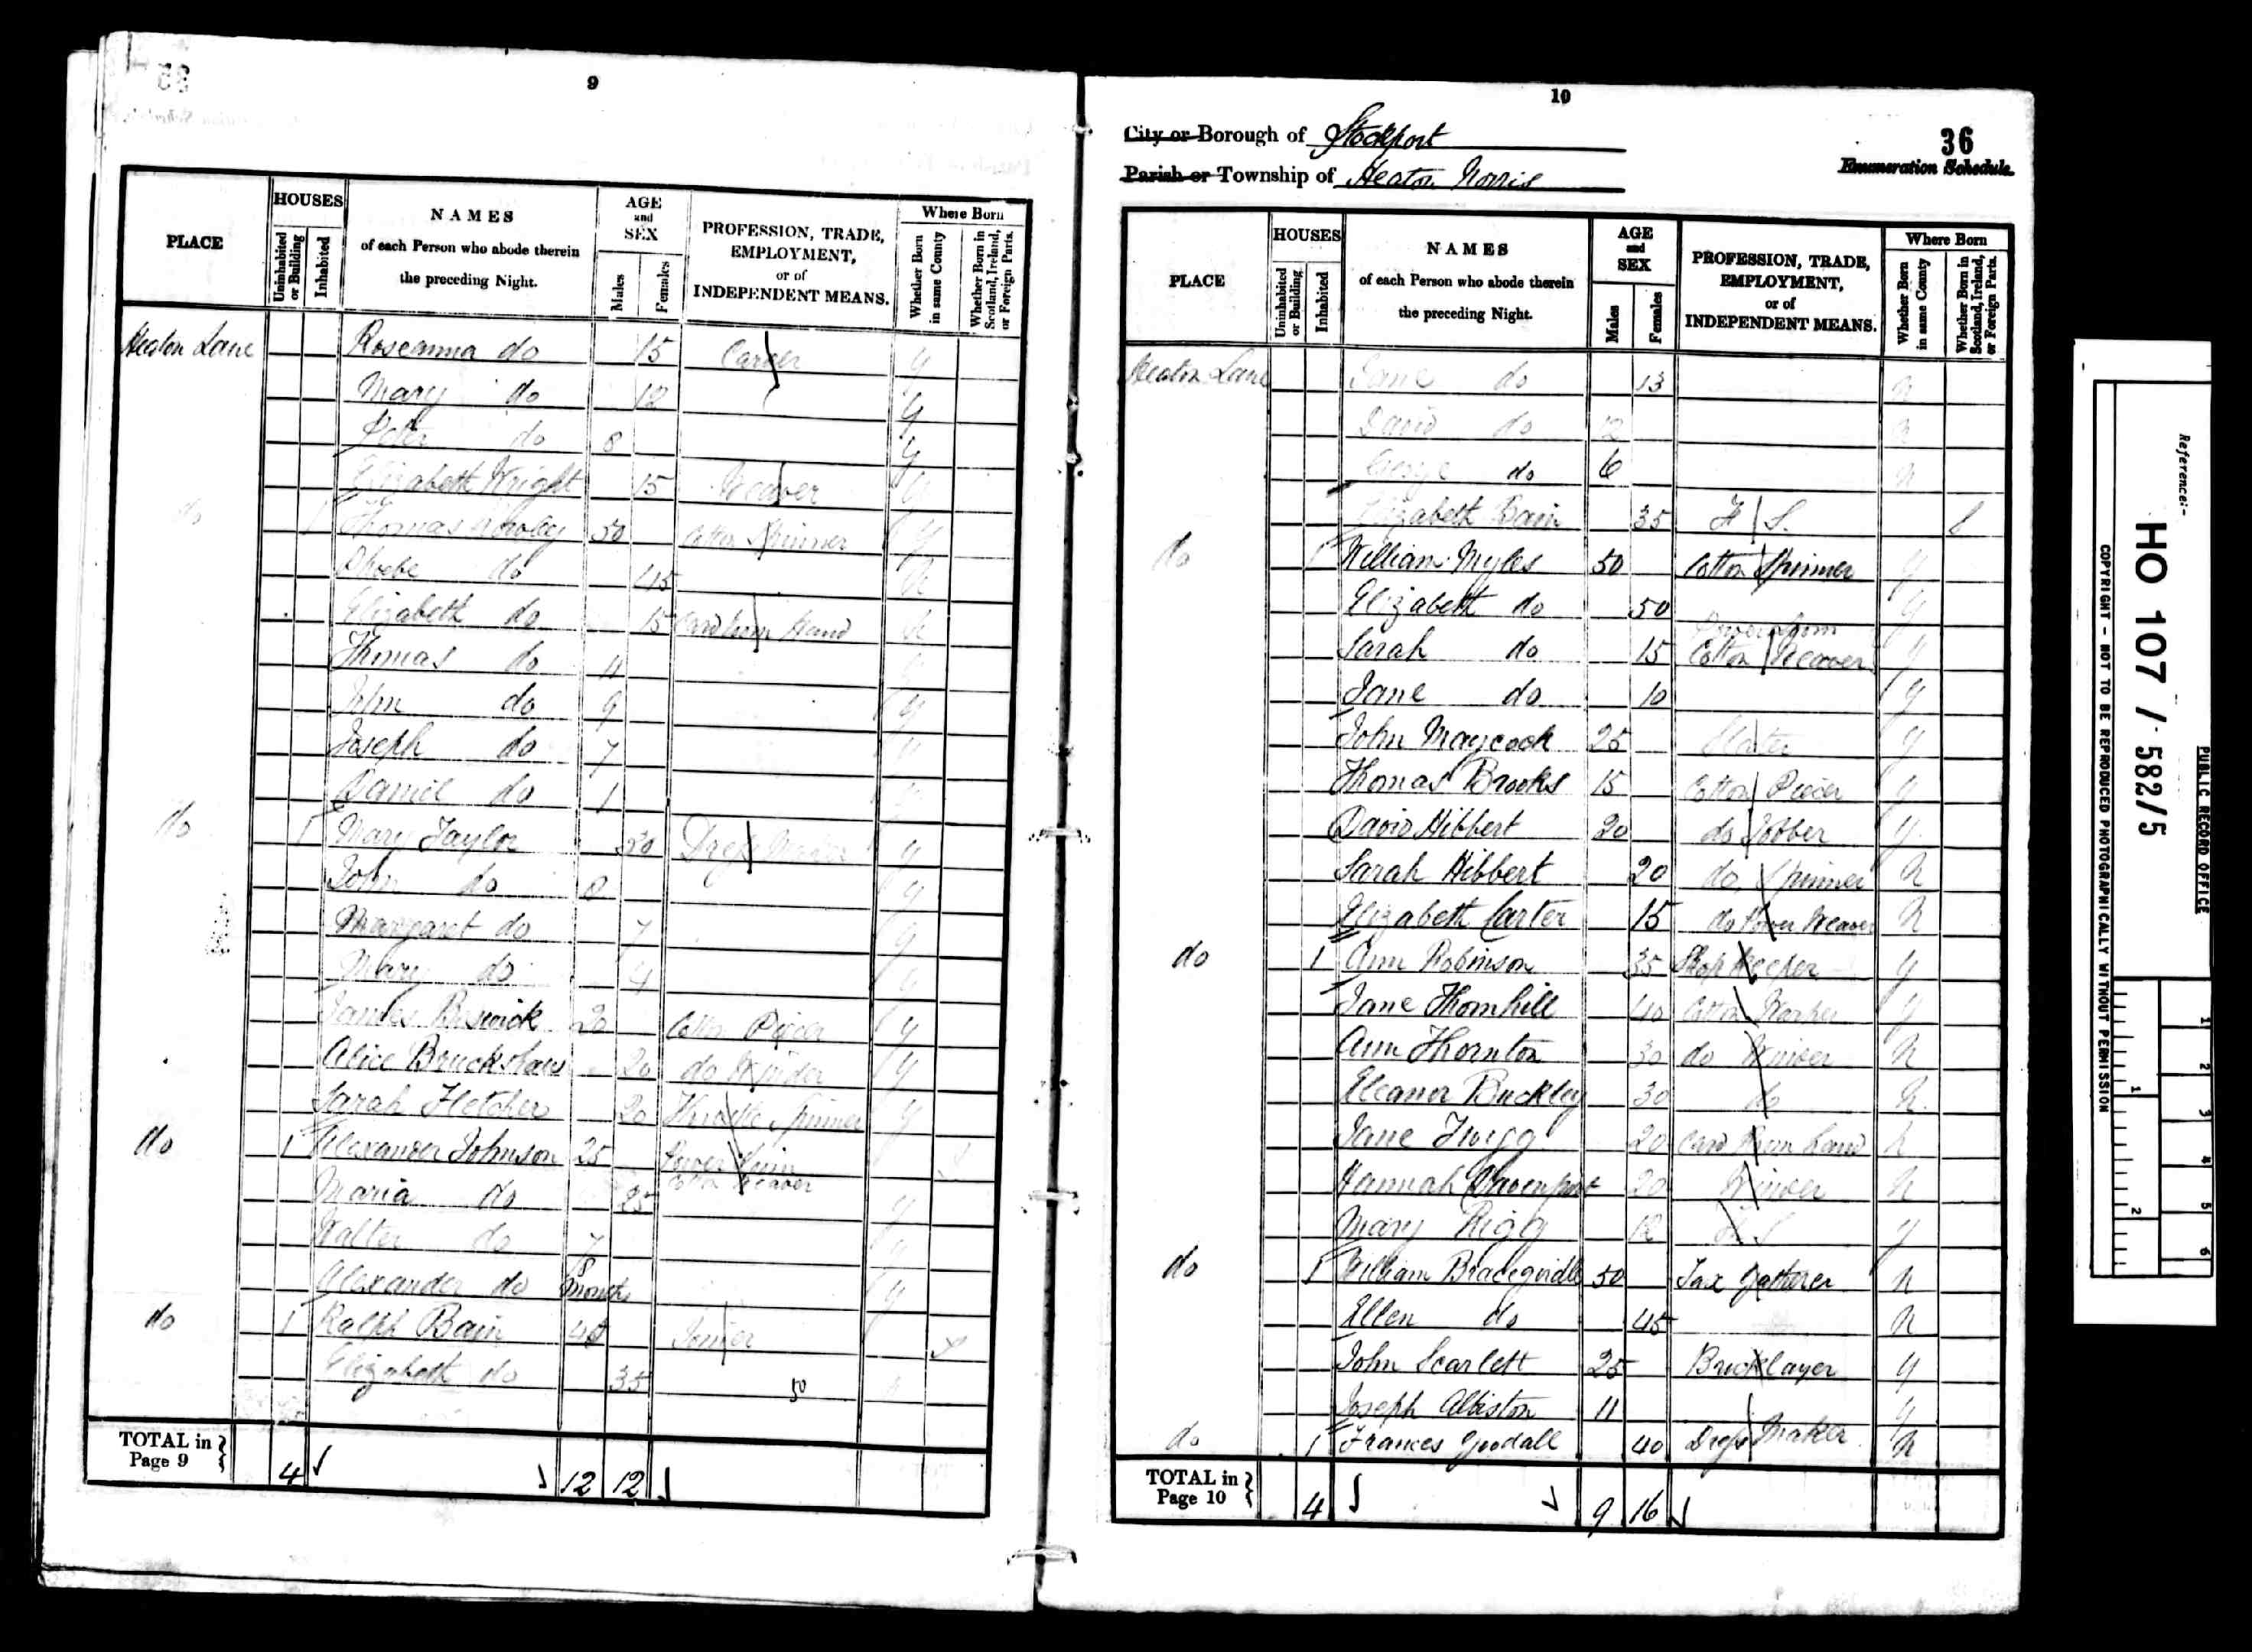 9
PLACE
HOUSES
Uninhabited or Building
Inhabited
NAMES
of each Person who abode therein
the preceding Night.
AGE
and
SEX
Males
Females
PROFESSION, TRADE,
EMPLOYMENT,
or of
INDEPENDENT MEANS.
Where Born
Whether Born in same County
Whether Born in Scotland, Ireland, or Foreign Parts.
Heaton Lane Roseanna do 15 Carder y
Mary do 12 y
Peter do 8 y
Elizabeth Wright 15 Weaver y
do 1 Thomas 50 Cotton Spinner y
Phoebe do 45 N
Elizabeth do 15 Card Room Hand
Thomas do 11
John do 9 y
Joseph do 7 y
Daniel do 1 y
do 1 Mary Taylor 30 Dress Maker y
John do 8 y
Margaret do 7 y
Mary do 4 y
James Beswick 20 Cotton Piecer y
Alice Bruckshaw 20 do Winder y
Sarah Fletcher 20 Throstle Spinner y
do 1 Alexander Johnson 25 Power Loom
Cotton Weaver
Maria do 25 y
Walter do 7 y
Alexander do 8 Month y
do 1 Ralph Bain 40 Joiner S
Elizabeth do 35
50
TOTAL in
Page 9 } 4 12 12
10
City or Borough of Stockport
Parish or Township of Heaton Norris
36
Enumeration Schedule.
PLACE
HOUSES
Uninhabited or Building
Inhabited
NAMES
of each Person who abode therein
the preceding Night.
AGE
and
SEX
Males
Females
PROFESSION, TRADE,
EMPLOYMENT,
or of
INDEPENDENT MEANS.
Where Born
Whether Born in same County
Whether Born in Scotland, Ireland, or Foreign Parts.
Heaton Lane Jane do 13 N
David do 12 N
George do 6 N
Elizabeth Bain 35 F S.
do 1 William Myles 50 Cotton Spinner y
Elizabeth do 50 y
Powerloom
Sarah do 15 Cotton Weaver y
Jane do 10 y
John Maycock 25 Slater y
Thomas Brooks 15 Cotton Piecer y
David Hibbert 20 do Jobber y
Sarah Hibbert 20 do Spinner N
Elizabeth Carter 15 do Power Weaver N
do 1 Ann Robinson 35 Shop Keeper y
Jane Thornhill 40 Cotton Worker y
Ann Thornton 30 do Winder N
Eleanor Buckley 30 do N
Jane Twigg 20 Card Room Hand N
Hannah Davenport 20 Winder N
Mary Rigg 12 F S y
do 1 William Bracegirdle 50 Tax Gatherer N
Ellen do 45 N
John Scarlett 25 Bricklayer y
Joseph Albiston 11 y
do 1 Frances Goodall 40 Dress Maker N
TOTAL in
Page 10 } 4 9 16
Reference:-
HO 107 / 582/5
PUBLIC RECORD OFFICE
COPYRIGHT - NOT TO BE REPRODUCED PHOTOGRAPHICALLY WITHOUT PERMISSION
1 2 3 4 5 6
1 2